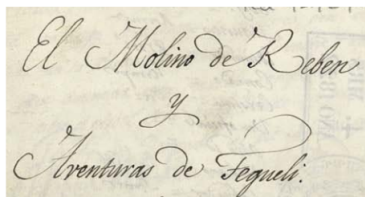 El Molino de Keben
y
Aventuras de Tequeli.